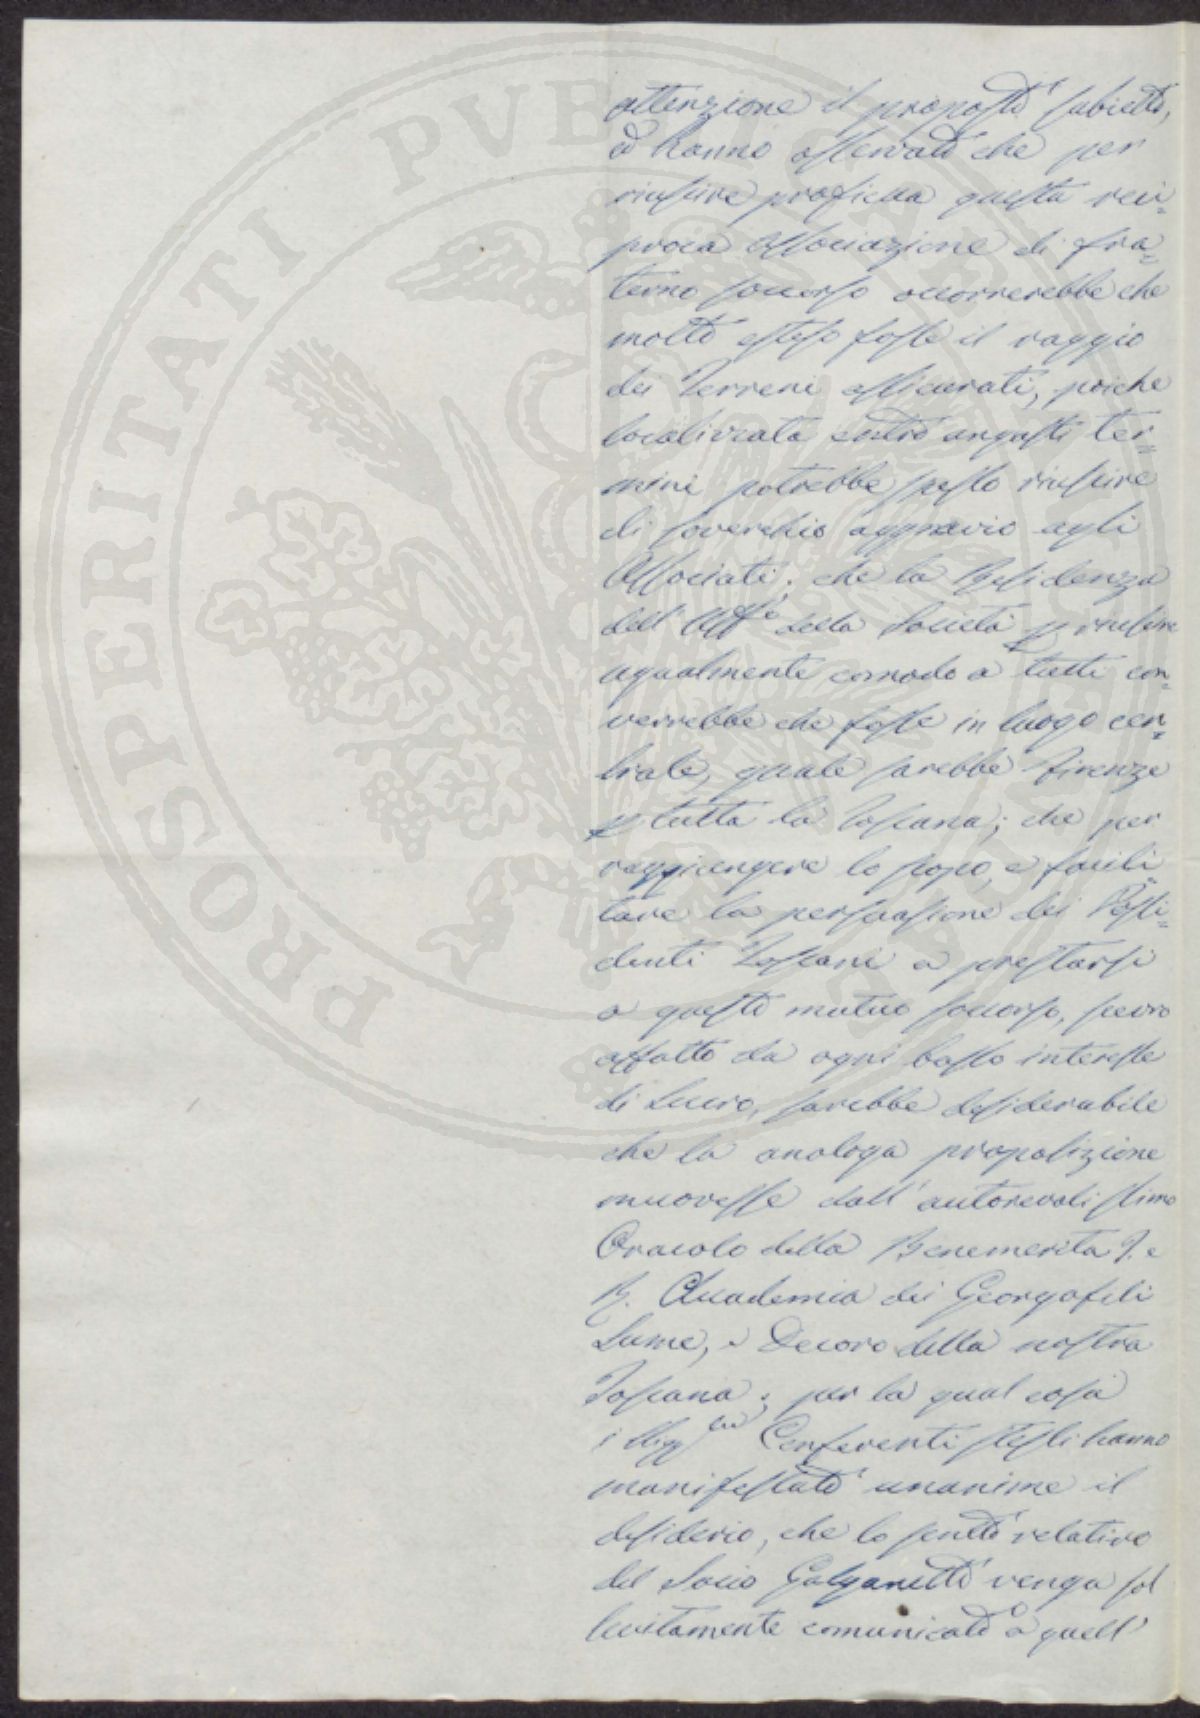 PROSPERITATI PVBLICAE AVGENDAE
attenzione il proposto subietto,
ed hanno osservato che per
riuscire proficua questa reci=
proca Associazione di fra=
terno soccorso occorrerebbe che
molto esteso fosse il raggio
dei Terreni assicurati, poiche
localizzata entro angusti ter=
mini potrebbe spesso riuscire
di soverchio aggravio agli
Associati; che la Residenza
dell' Uff.o della Società p riuscire
ugualmente comodo a tutti con=
verrebbe che fosse in luogo cen=
trale, quale sarebbe Firenze
p tutta la Toscana; che per
raggiungere lo scopo, e facili=
tare la persuasione dei Possi=
denti Toscani a prestarsi
a questo mutuo soccorso, scevro
affatto da ogni basso interesse
di Lucro, sarebbe desiderabile
che la analoga propolizione
muovesse dall' autorevolissimo
Oracolo della Benemerita I. e
R. Accademia dei Georgofili
Lume, e Decoro della nostra
Toscana; per la qual cosa
i Conferenti stessi hanno
manifestato unanime il
desiderio, che lo scritto relativo
del Socio Galganetti venga sol
lecitamente comunicato a quell'